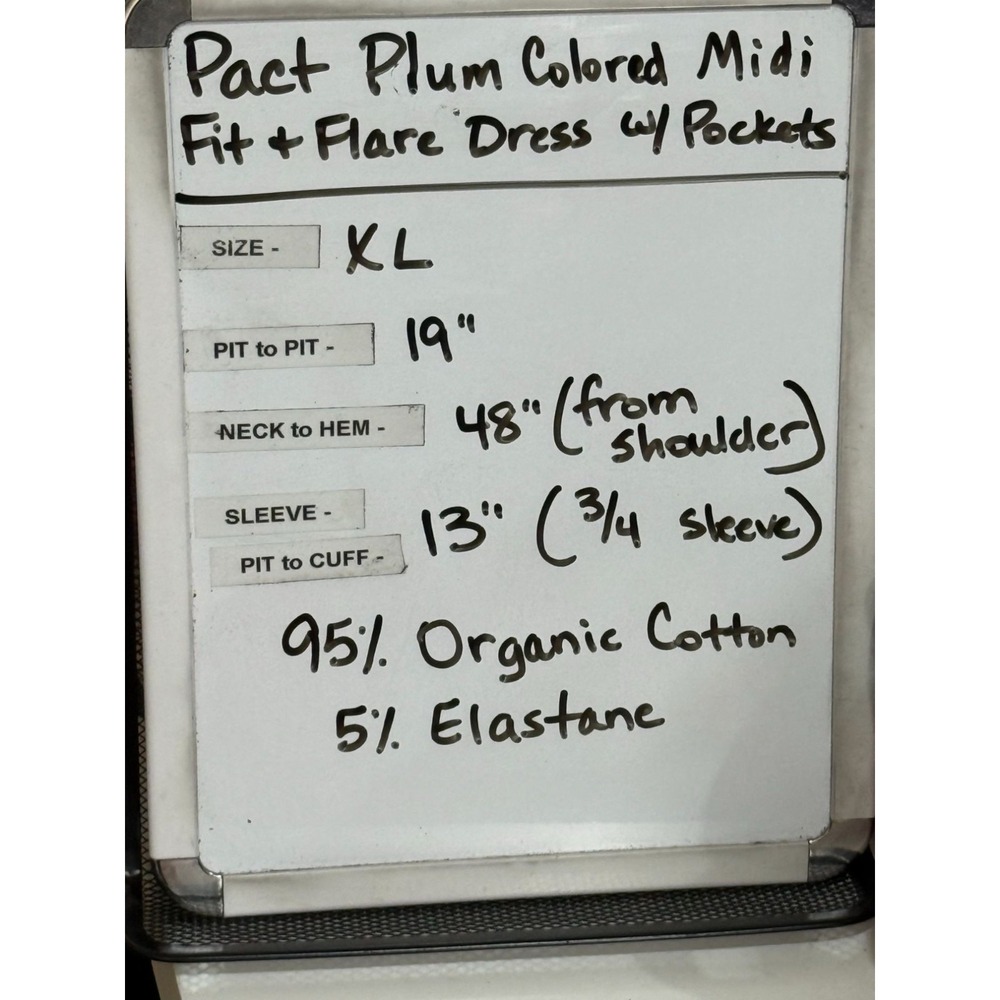 Pact Plum Colored Midi
Fit + Flare Dress w/ Pockets
SIZE - XL
PIT to PIT - 19"
NECK to HEM - 48" (from shoulder)
SLEEVE -
PIT to CUFF - 13" (3/4 sleeve)
95% Organic Cotton
5% Elastane